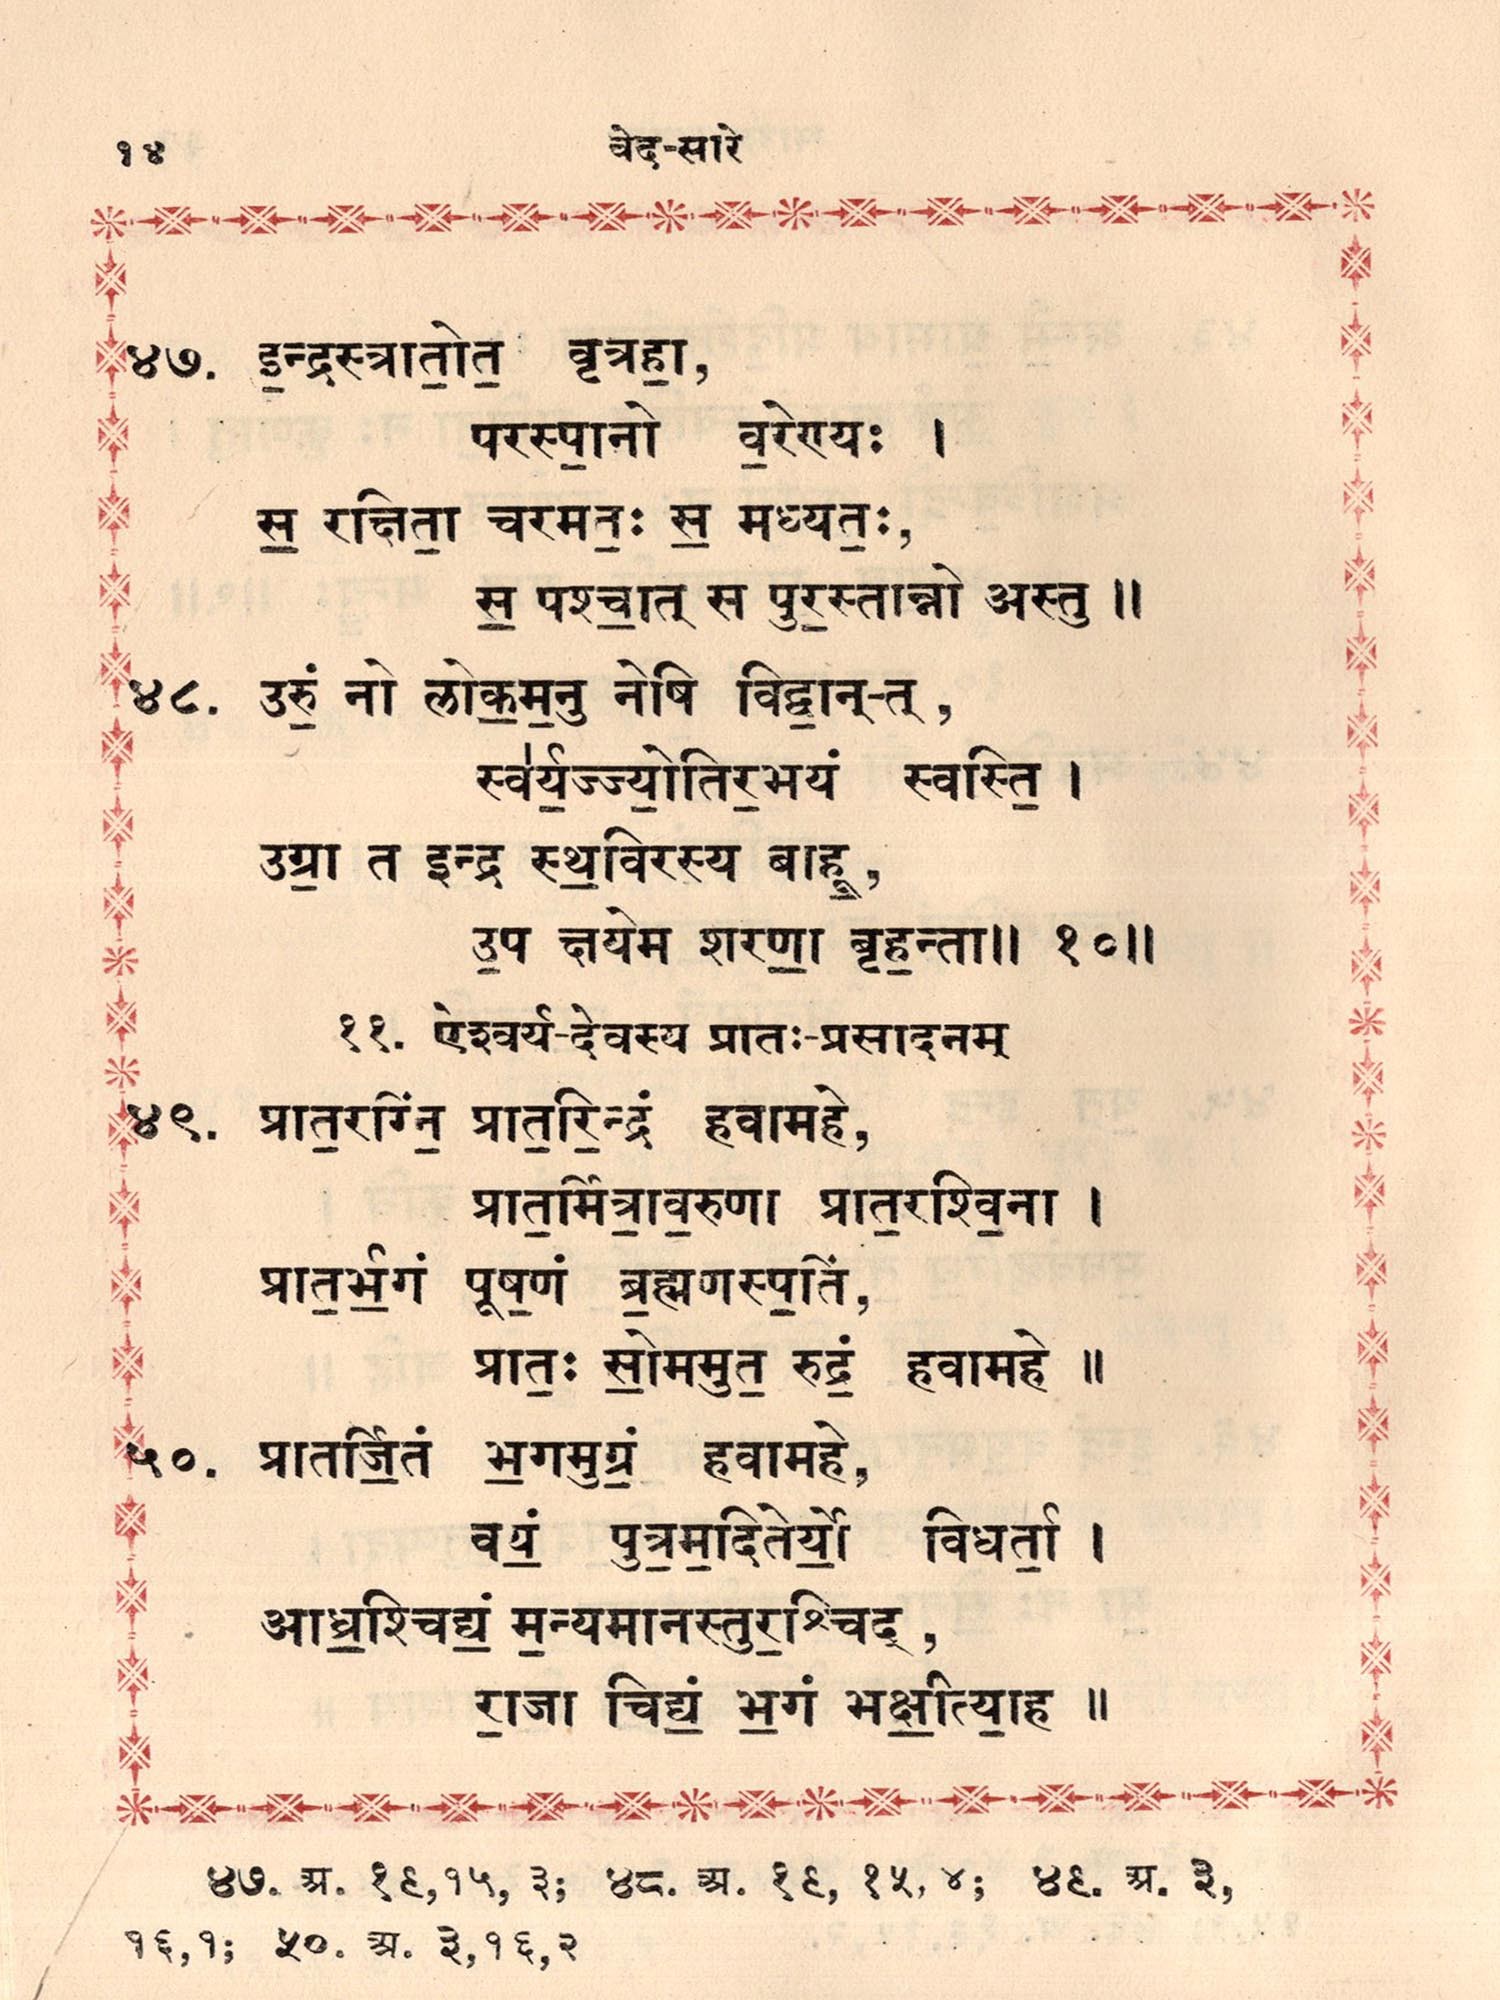 १४ वेद-सारे
४७. इ॒न्द्रस्त्रा॒तो॒त॒ वृत्रहा॒,
परस्पा॒नो व॒रेण्यः ।
स॒ रक्षिता॒ चरमत॒ः स॒ मध्यत॒ः,
स॒ पश्चा॒त् स पुर॒स्तान्नो अस्तु ॥
४८. उरुं॒ नो लोक॒म॒नु नेषि विद्वा॒न्-त्,
स्व॑र्य॒ज्ज्यो॒तिर॒भयं स्वस्ति॒ ।
उग्रा॒ त इन्द्र स्थ॒विरस्य बाहू॒,
उ॒प क्षयेम शरणा॒ बृह॒न्ता॥ १०॥
११. ऐश्वर्य-देवस्य प्रातः-प्रसादनम्
४९. प्रात॒रग्निं॒ प्रात॒रि॒न्द्रं हवामहे,
प्रात॒र्मित्रा॒व॒रुणा प्रात॒रश्वि॒ना ।
प्रात॒र्भ॒गं पूष॒णं ब्र॒ह्मणस्प॒तिं,
प्रात॒ः सो॒ममुत॒ रुद्रं॒ हवामहे ॥
५०. प्रातर्जि॒तं भ॒गमुग्रं॒ हवामहे,
वयं॒ पुत्र॒म॒दितेर्यो॒ विधर्ता॒ ।
आध्र॒श्चिद्यं॒ म॒न्यमानस्तुर॒श्चिद्,
रा॒जा चिद्यं॒ भ॒गं भक्षी॒त्या॒ह ॥
४७. अ. १९,१५, ३; ४८. अ. १९, १५, ४; ४९. अ. ३,
१६,१; ५०. अ. ३,१६,२